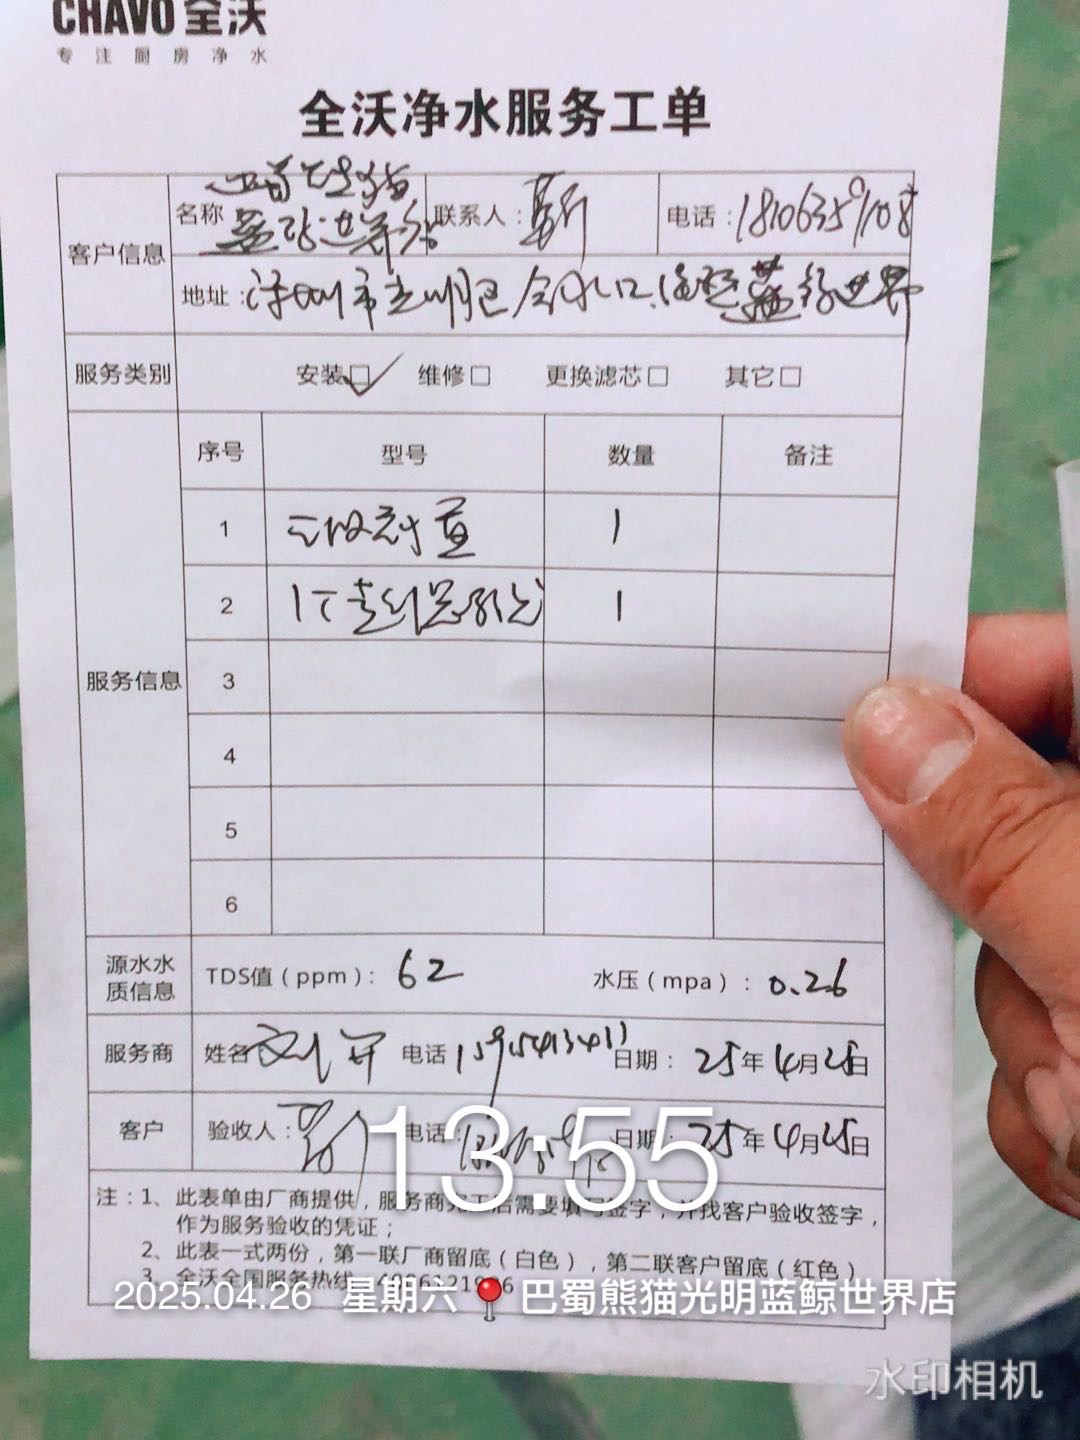 CHAVO 全沃
专注厨房净水
全沃净水服务工单
客户信息
名称 巴蜀熊猫
蓝鲸世界店
联系人：
电话：18106359108
地址：深圳市光明区 蓝鲸世界
服务类别 安装☑ 维修□ 更换滤芯□ 其它□
服务信息
序号 型号 数量 备注
1 1
2 1
3
4
5
6
源水水质信息 TDS值（ppm）：62 水压（mpa）：0.26
服务商 姓名 刘 电话 15915413411 日期：25年4月25日
客户 验收人： 电话： 日期：25年4月25日
13:55
注：1、此表单由厂商提供，服务商完工后需要填写签字，并找客户验收签字，
作为服务验收的凭证；
2、此表一式两份，第一联厂商留底（白色），第二联客户留底（红色）
3、全沃全国服务热线
2025.04.26 星期六 巴蜀熊猫光明蓝鲸世界店
水印相机